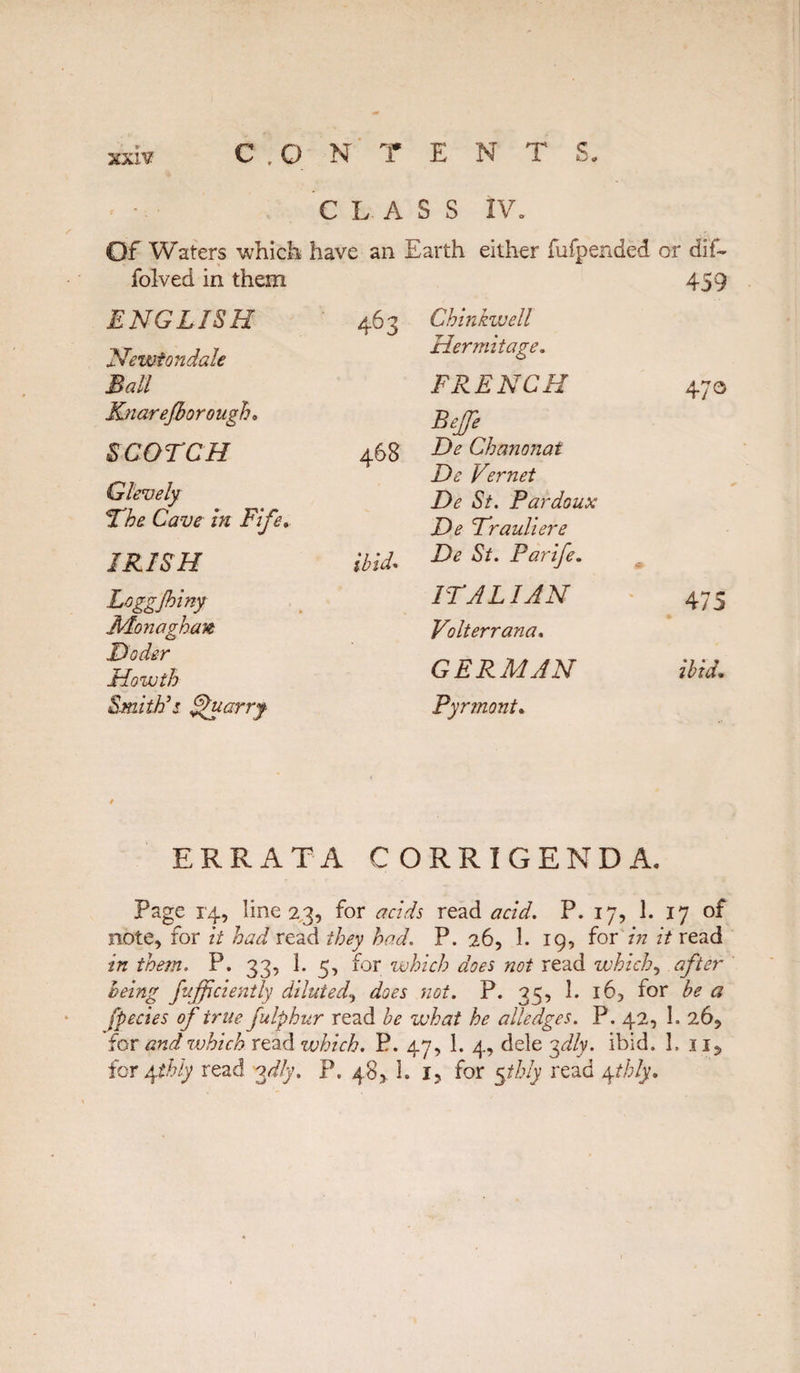 xxiv CONTENTS.
CLASS IV.
Of Waters which have an Earth either ſuſpended or diſ-
ſolved in them 459
ENGLISH 463
Newtondale
Ball
Knareſborough.
SCOTCH 468
Glevely
The Cave in Fife.
IRISH ibid.
Loggſhiny
Monaghan
Doder
Howth
Smith's Quarry
Chinkwell
Hermitage.
FRENCH 470
Beſſe
De Chanonat
De Vernet
De St. Pardoux
De Trauliere
De St. Pariſe.
ITALIAN 475
Volterrana.
GERMAN ibid.
Pyrmont.
ERRATA CORRIGENDA.
Page 14, line 23, for acids read acid. P. 17, l. 17 of
note, for it had read they had. P. 26, l. 19, for in it read
in them. P. 33, l. 5, for which does not read which, after
being ſufficiently diluted, does not. P. 35, l. 16, for be a
ſpecies of true ſulphur read be what he alledges. P. 42, l. 26,
for and which read which. P. 47, l. 4, dele 3dly. ibid. l. 11,
for 4thly read 3dly. P. 48, l. 1, for 5thly read 4thly.